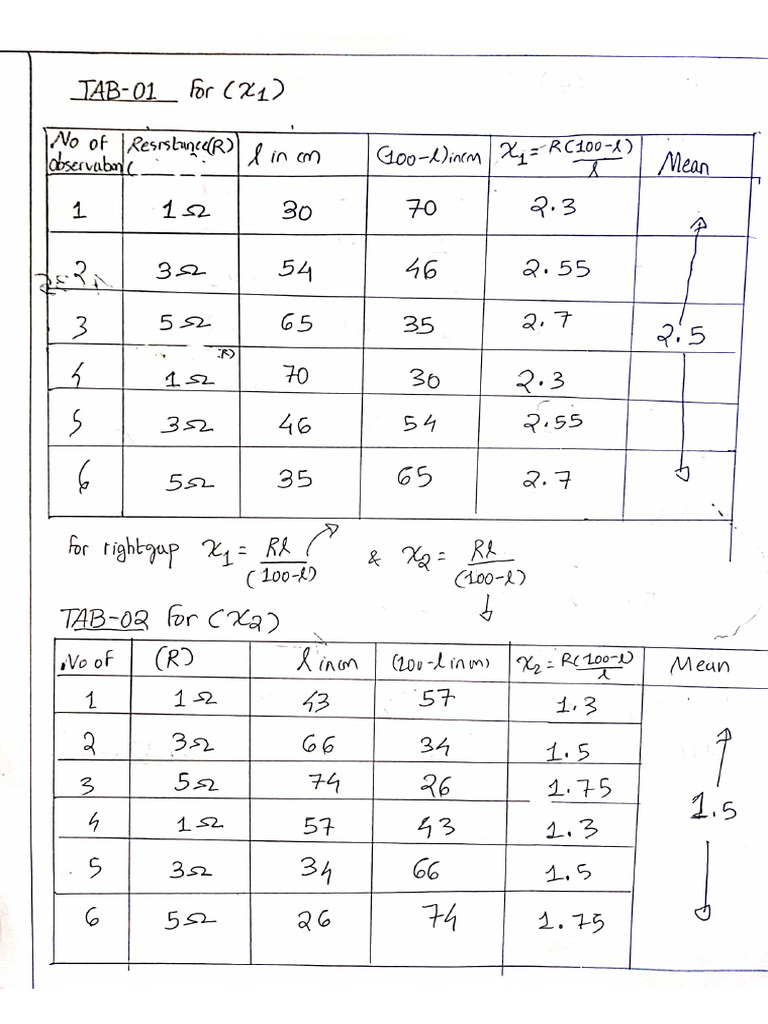 TAB-01 for (x1)
No of observation Resistance(R) l in cm (100-l)in cm x1 = R(100-l)/l Mean
1 1Ω 30 70 2.3
2 3Ω 54 46 2.55
3 5Ω 65 35 2.7 2.5
4 1Ω 70 30 2.3
5 3Ω 46 54 2.55
6 5Ω 35 65 2.7
for right gap x1 = Rl/(100-l) & x2 = Rl/(100-l)
TAB-02 for (x2)
No of (R) l in cm (100-l in cm) x2 = R(100-l)/l Mean
1 1Ω 43 57 1.3
2 3Ω 66 34 1.5
3 5Ω 74 26 1.75 1.5
4 1Ω 57 43 1.3
5 3Ω 34 66 1.5
6 5Ω 26 74 1.75